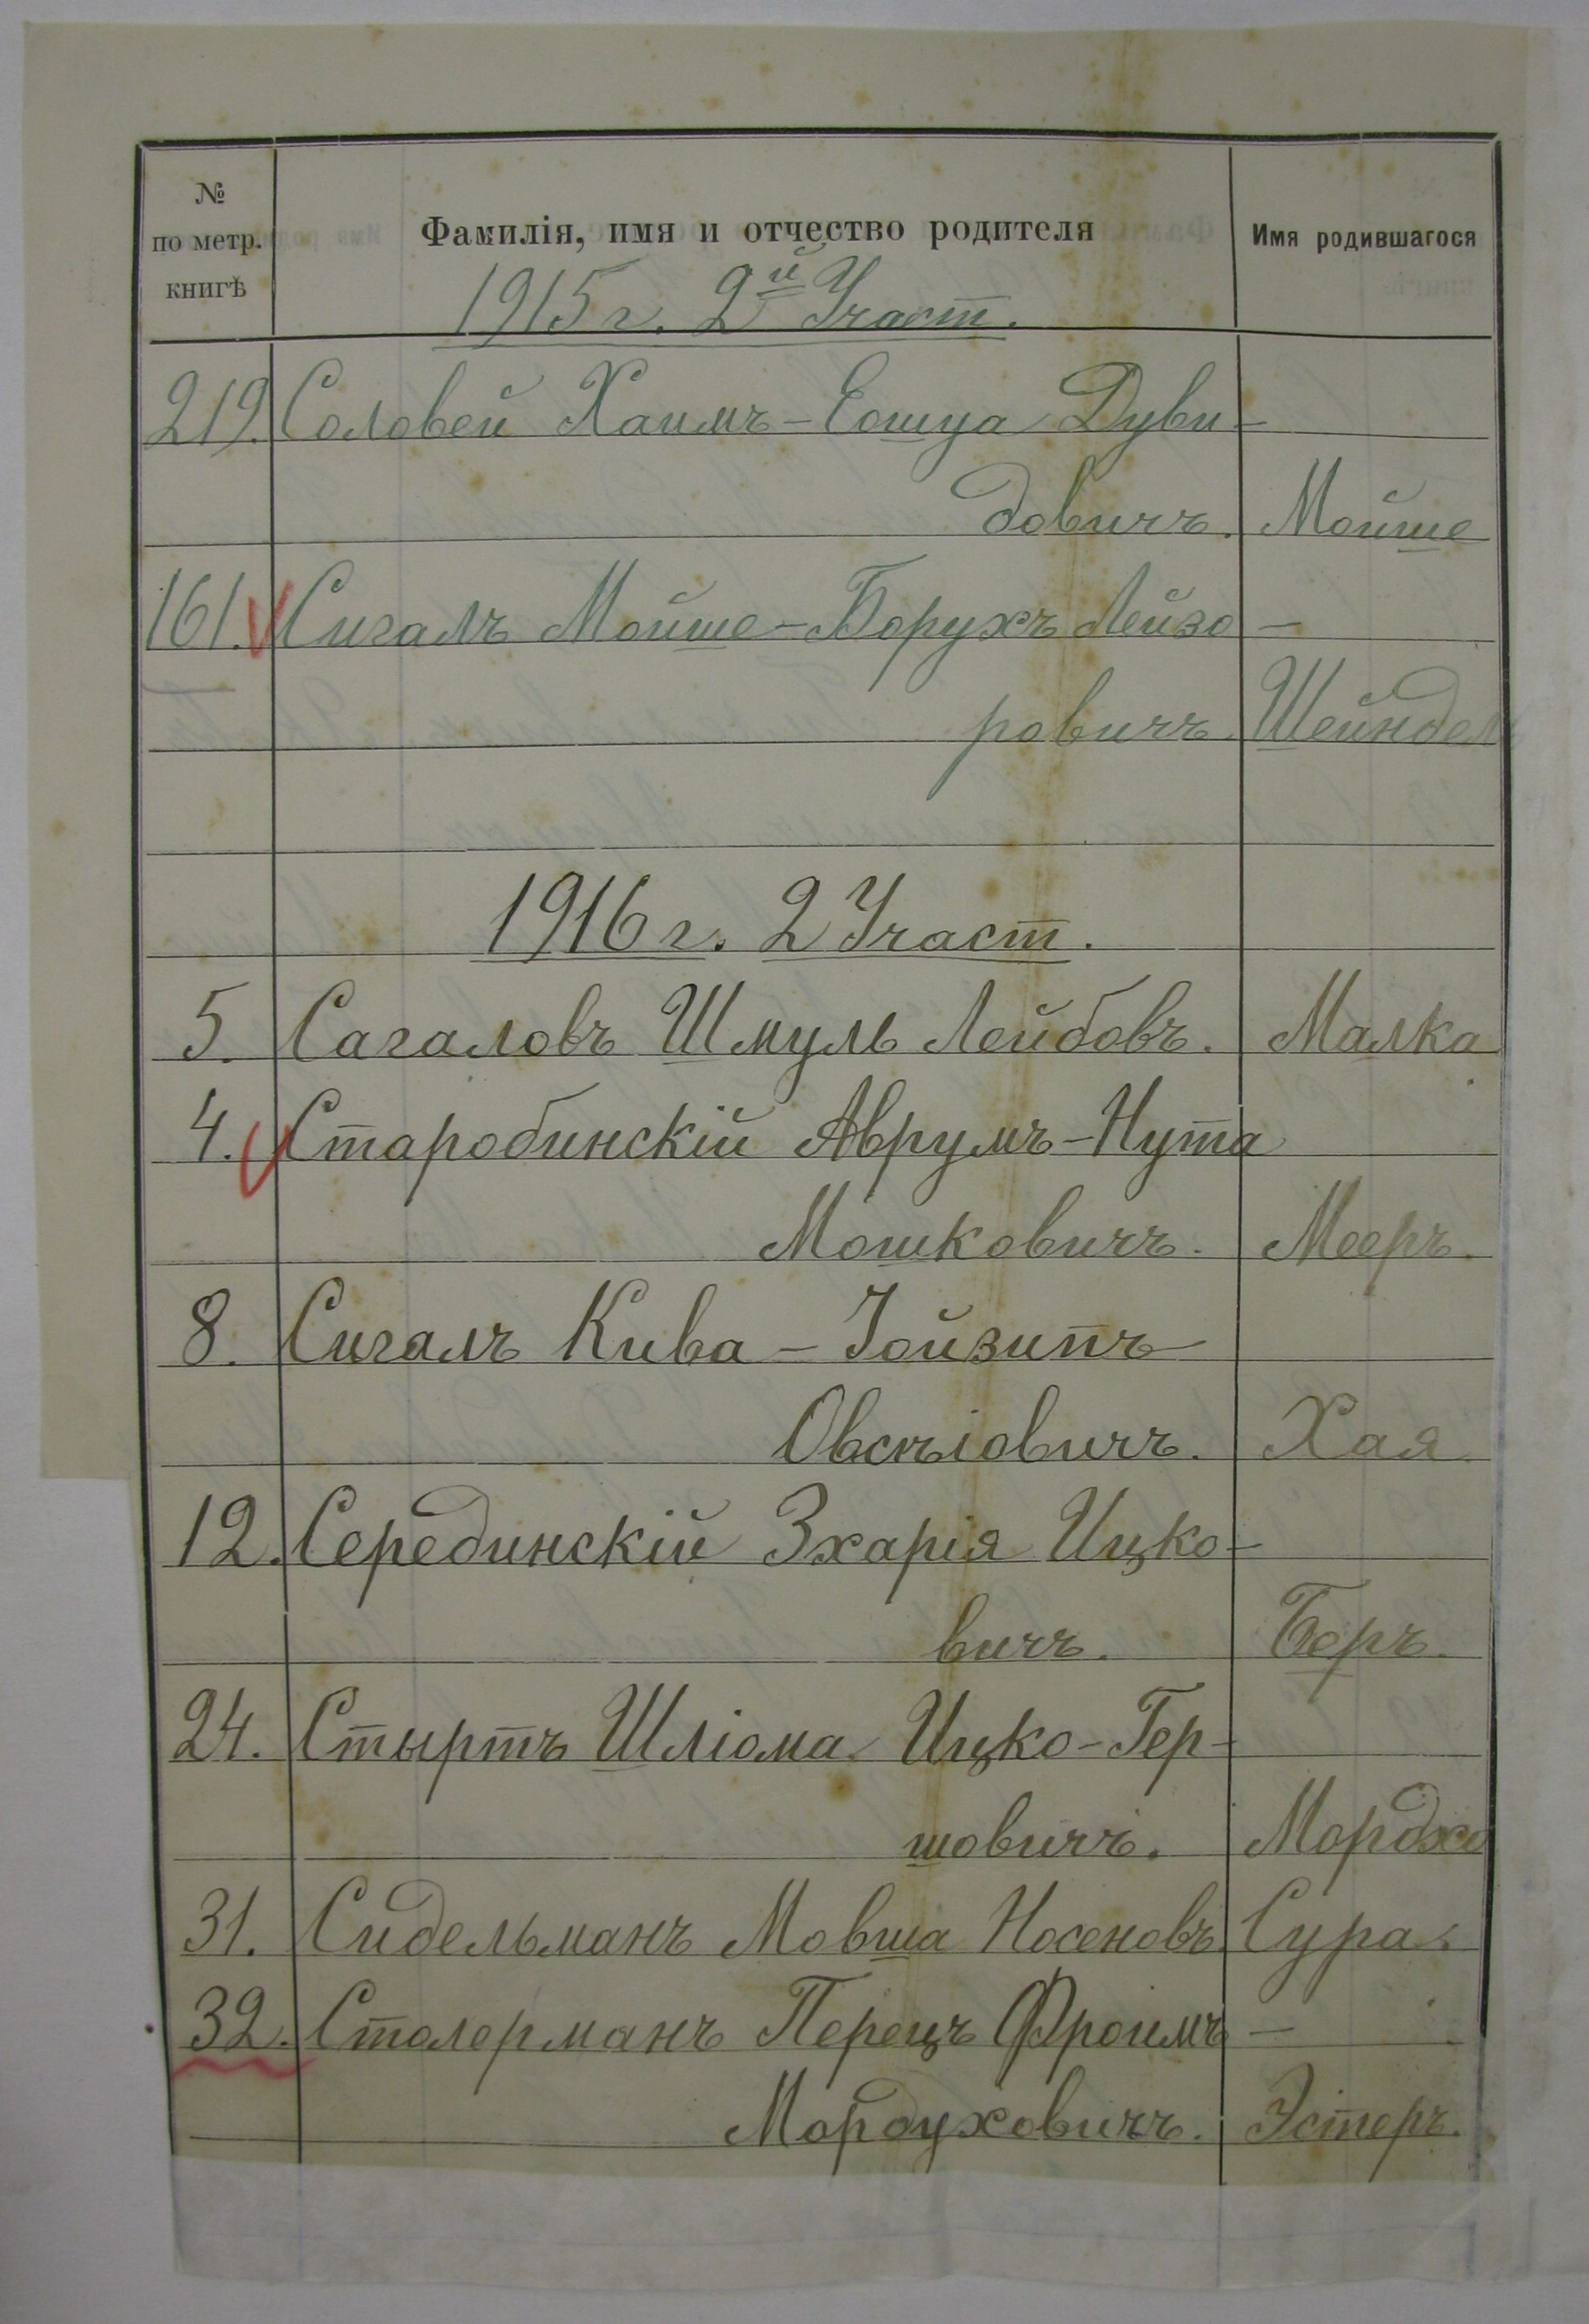 № по метр. книгѣ Фамилія, имя и отчество родителя Имя родившагося
1915 г. 2й Участ.
219. Соловей Хаимъ-Еошуа Дуви-
довичъ. Мойше
161. Сигалъ Мойше-Борухъ Лейзо-
ровичъ. Шейндел
1916 г. 2 Участ.
5. Сагаловъ Шмуль Лейбовъ. Малка
4. Старобинскій Аврумъ-Нута
Мошковичъ. Мееръ.
8. Сигалъ Кива-Іойзипъ
Овсѣіовичъ. Хая
12. Серединскій Зхарія Ицко-
вичъ. Беръ.
24. Стыртъ Шліома Ицко-Гер-
шовичъ. Мордхо
31. Сидельманъ Мовша Носеновъ Сура.
32. Столерманъ Перецъ Фроимъ-
Мордуховичъ. Эстеръ.